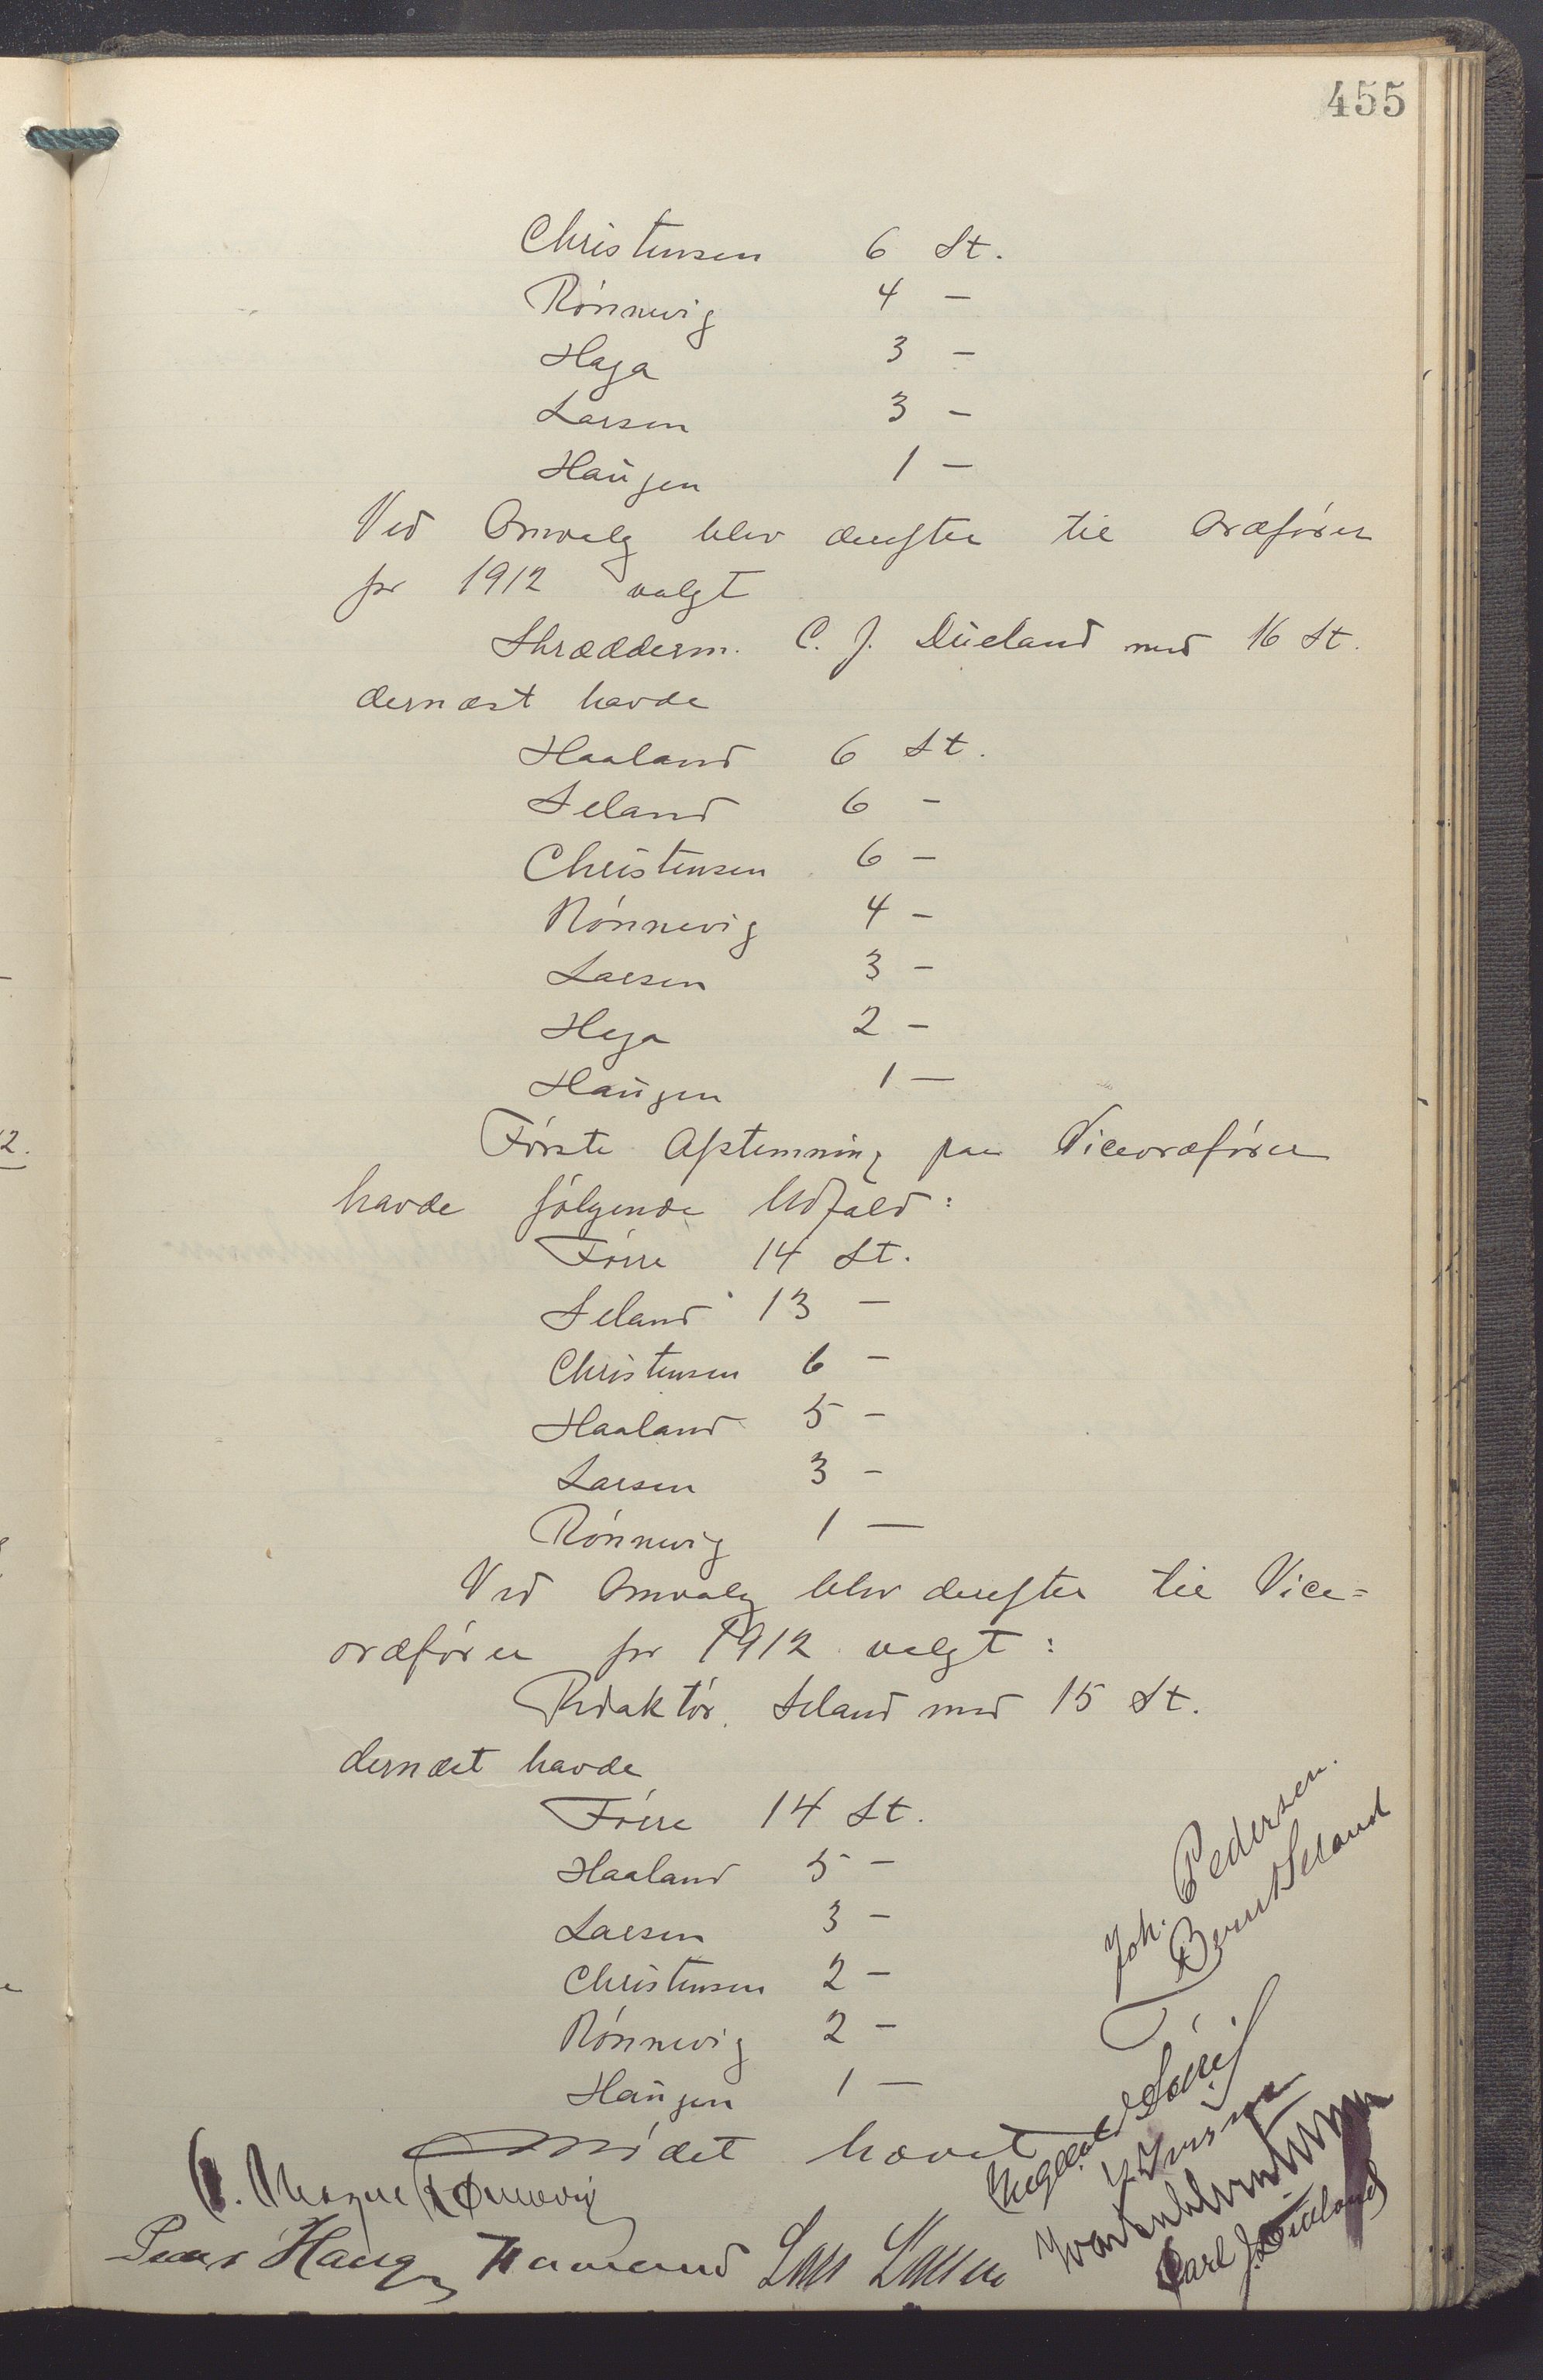 455
Christensen 6 St.
Rönnevig 4 -
Haga 3 -
Larsen 3 -
Haugen 1 -
Ved Omvalg blev derefter til Ordfører
for 1912 valgt
Skrædderm. C. J. Dueland med 16 St.
dernæst havde
Haaland 6 St.
Seland 6 -
Christensen 6 -
Rönnevig 4 -
Larsen 3 -
Haga 2 -
Haugen 1 -
Første Afstemning paa Viceordfører
havde følgende Udfald:
Förre 14 St.
Seland 13 -
Christensen 6 -
Haaland 5 -
Larsen 3 -
Rönnevig 1 -
Ved Omvalg blev derefter til Vice=
ordfører for 1912 valgt:
Redaktör. Seland med 15 St.
dernæst havde
Förre 14 St.
Haaland 5 -
Larsen 3 -
Christensen 2 -
Rönnevig 2 -
Haugen 1 -
Mödet hævet
Joh. Pedersen.
Bernt Seland
Carl J. Dueland
Rønnevig
Peder Haug
Lars Larsen